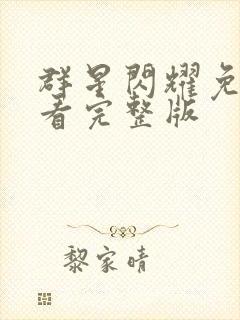 群星閃耀免
看完整版
黎家晴